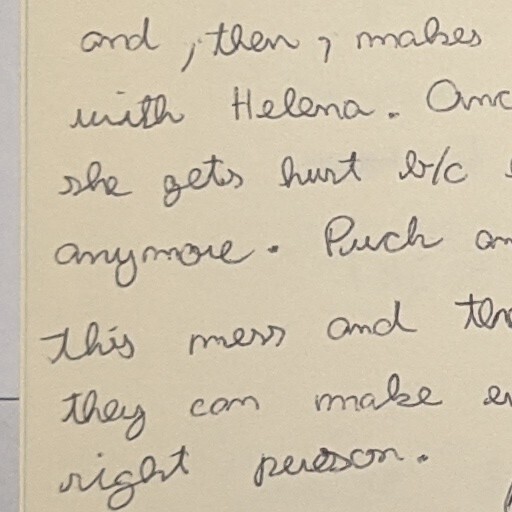 and, then, makes
with Helena.
she gets hurt b/c
anymore. Puck
this mess and
they can make
right person.